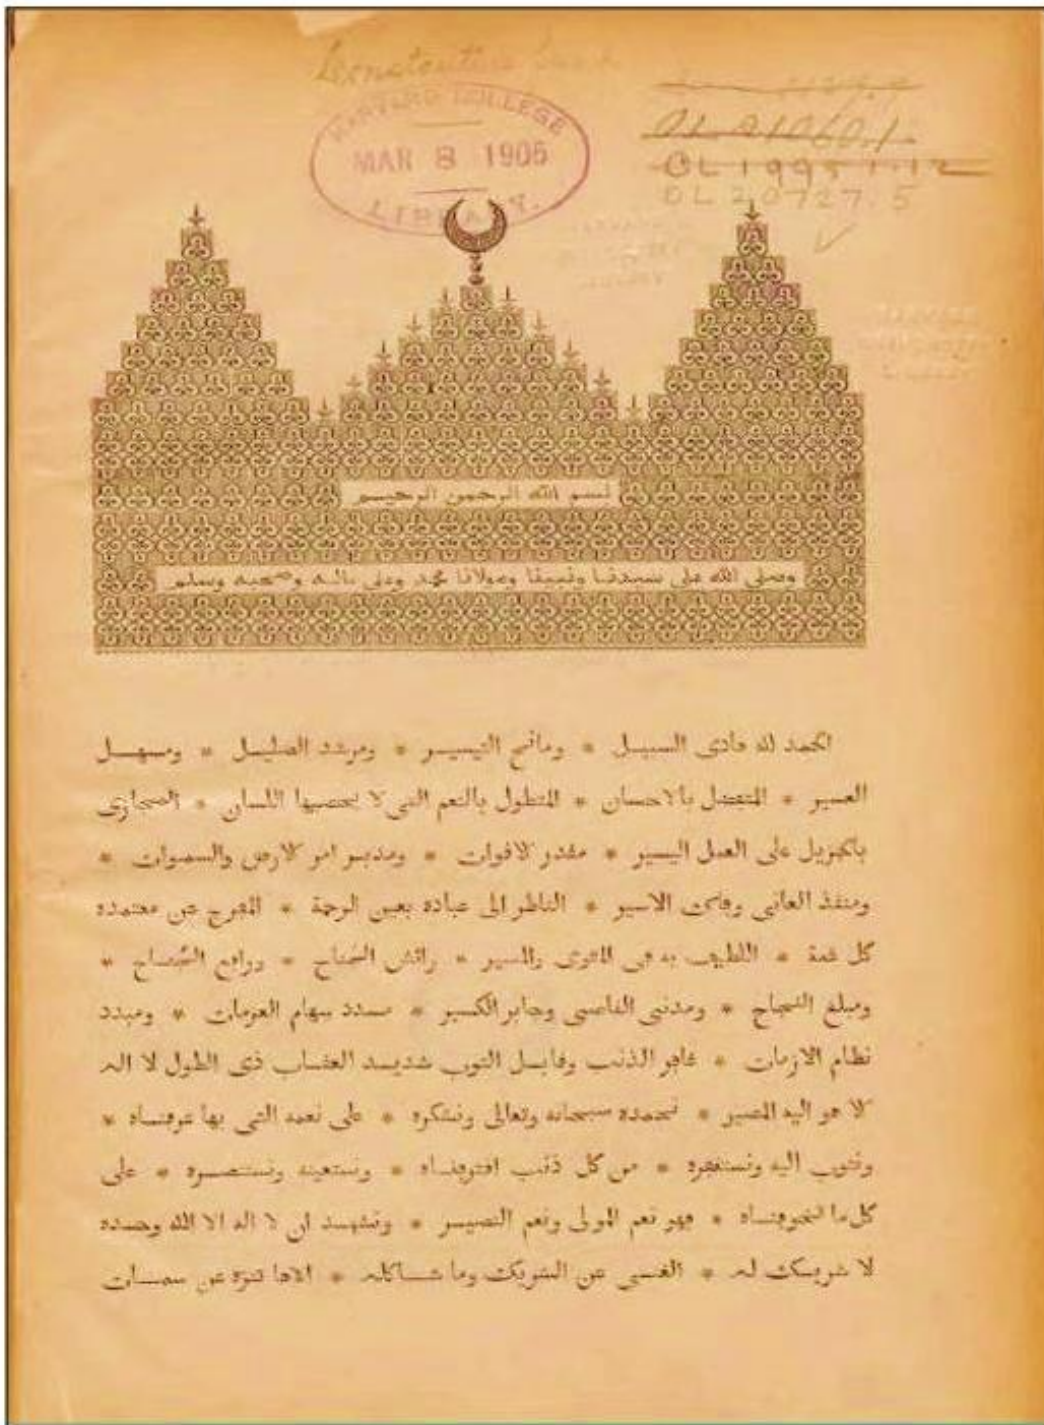 HARVARD COLLEGE
MAR 8 1905
LIBRARY.
OL 21060.1.
OL 1995 1.12
OL 20727.5
بسم الله الرحمن الرحيم
وصلى الله على سيدنا ونبينا ومولانا محمد وعلى ءاله وصحبه وسلم
الحمد لله هادى السبيل * ومانح التيسير * ومرشد الضليل * ومسهل
العسير * المتفضل بالاحسان * المتطول بالنعم التى لا يحصيها اللسان * المجازى
بالجزيل على العمل اليسير * مقدر الاقوات * ومدبر امر الارض والسموات *
ومنقذ العانى وفاكّ الاسير * الناظر الى عباده بعين الرحمة * المفرج عن معتمده
كل غمة * اللطيف به فى المثوى والمسير * رائش الجناح * ورافع الجناح *
ومبلغ النجاح * ومدنى القاصى وجابر الكسير * مسدد سهام العزمات * ومبدد
نظام الازمات * غافر الذنب وقابل التوب شديد العقاب ذى الطول لا اله
الا هو اليه المصير * نحمده سبحانه وتعالى ونشكره * على نعمه التى بها عرفناه *
ونتوب اليه ونستغفره * من كل ذنب اقترفناه * ونستعينه ونستنصره * على
كل ما تخوفناه * فهو نعم المولى ونعم النصير * ونشهد ان لا اله الا الله وحده
لا شريك له * الغنى عن الشريك وما شاكله * الاها تنزه عن سمات